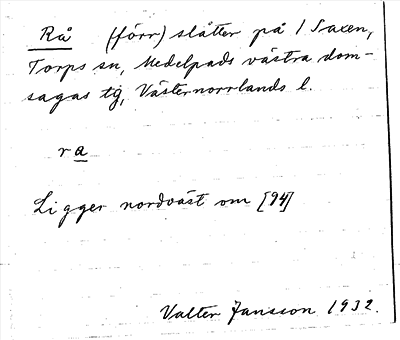 Rå (förr) slåtter på 1 Saxen,
Torps sn, Medelpads västra dom-
sagas tg, Västernorrlands l.
ra
Ligger nordväst om [94]
Valter Jansson 1932.